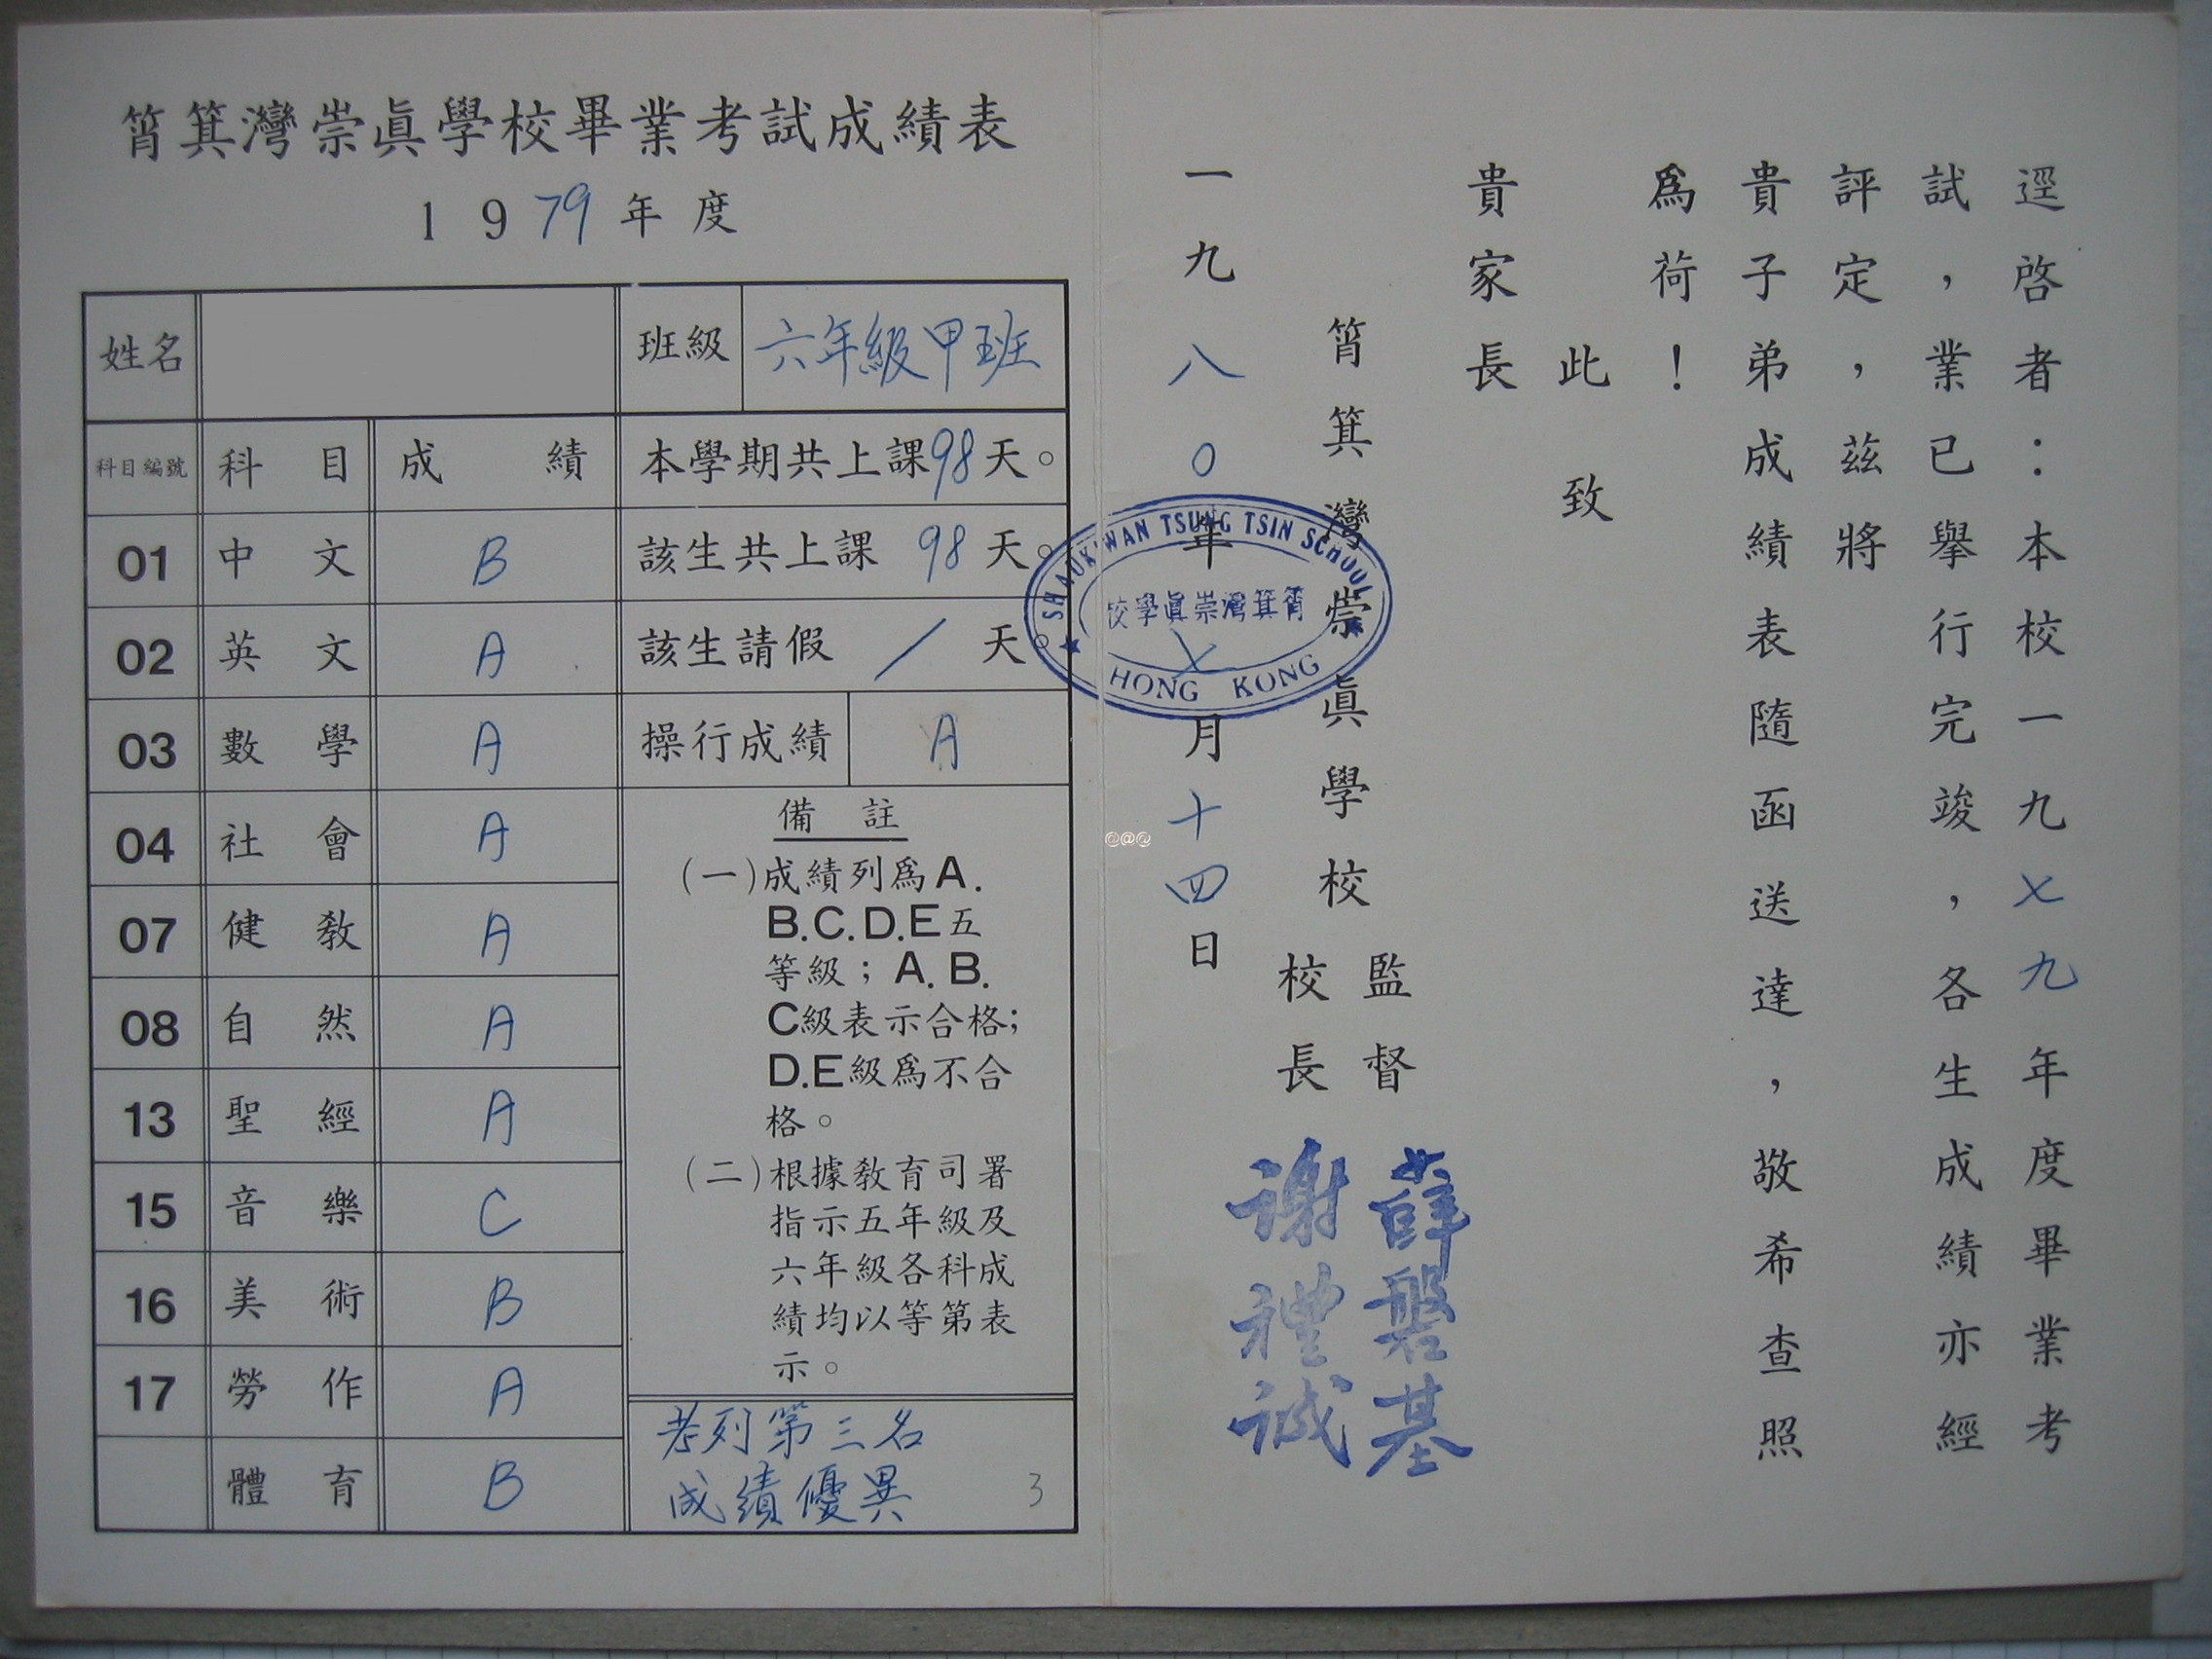 筲箕灣崇眞學校畢業考試成績表
1979年度
姓名 班級 六年級甲班
科目編號 科目 成績 本學期共上課98天。
01 中文 B 該生共上課 98 天。
02 英文 A 該生請假 / 天。
03 數學 A 操行成績 A
04 社會 A
07 健教 A
08 自然 A
13 聖經 A
15 音樂 C
16 美術 B
17 勞作 A
體育 B
備註
(一)成績列爲A.
B.C.D.E五
等級；A.B.
C級表示合格；
D.E級爲不合
格。
(二)根據教育司署
指示五年級及
六年級各科成
績均以等第表
示。
考列第三名
成績優異
3
逕啓者：本校一九七九年度畢業考
試，業已舉行完竣，各生成績亦經
評定，茲將
貴子弟成績表隨函送達，敬希查照
爲荷！
此致
貴家長
筲箕灣崇眞學校
監督 薛磐基
校長 謝禮誠
一九八0年七月十四日
SHAUKIWAN TSUNG TSIN SCHOOL
筲箕灣崇眞學校
HONG KONG
@@@